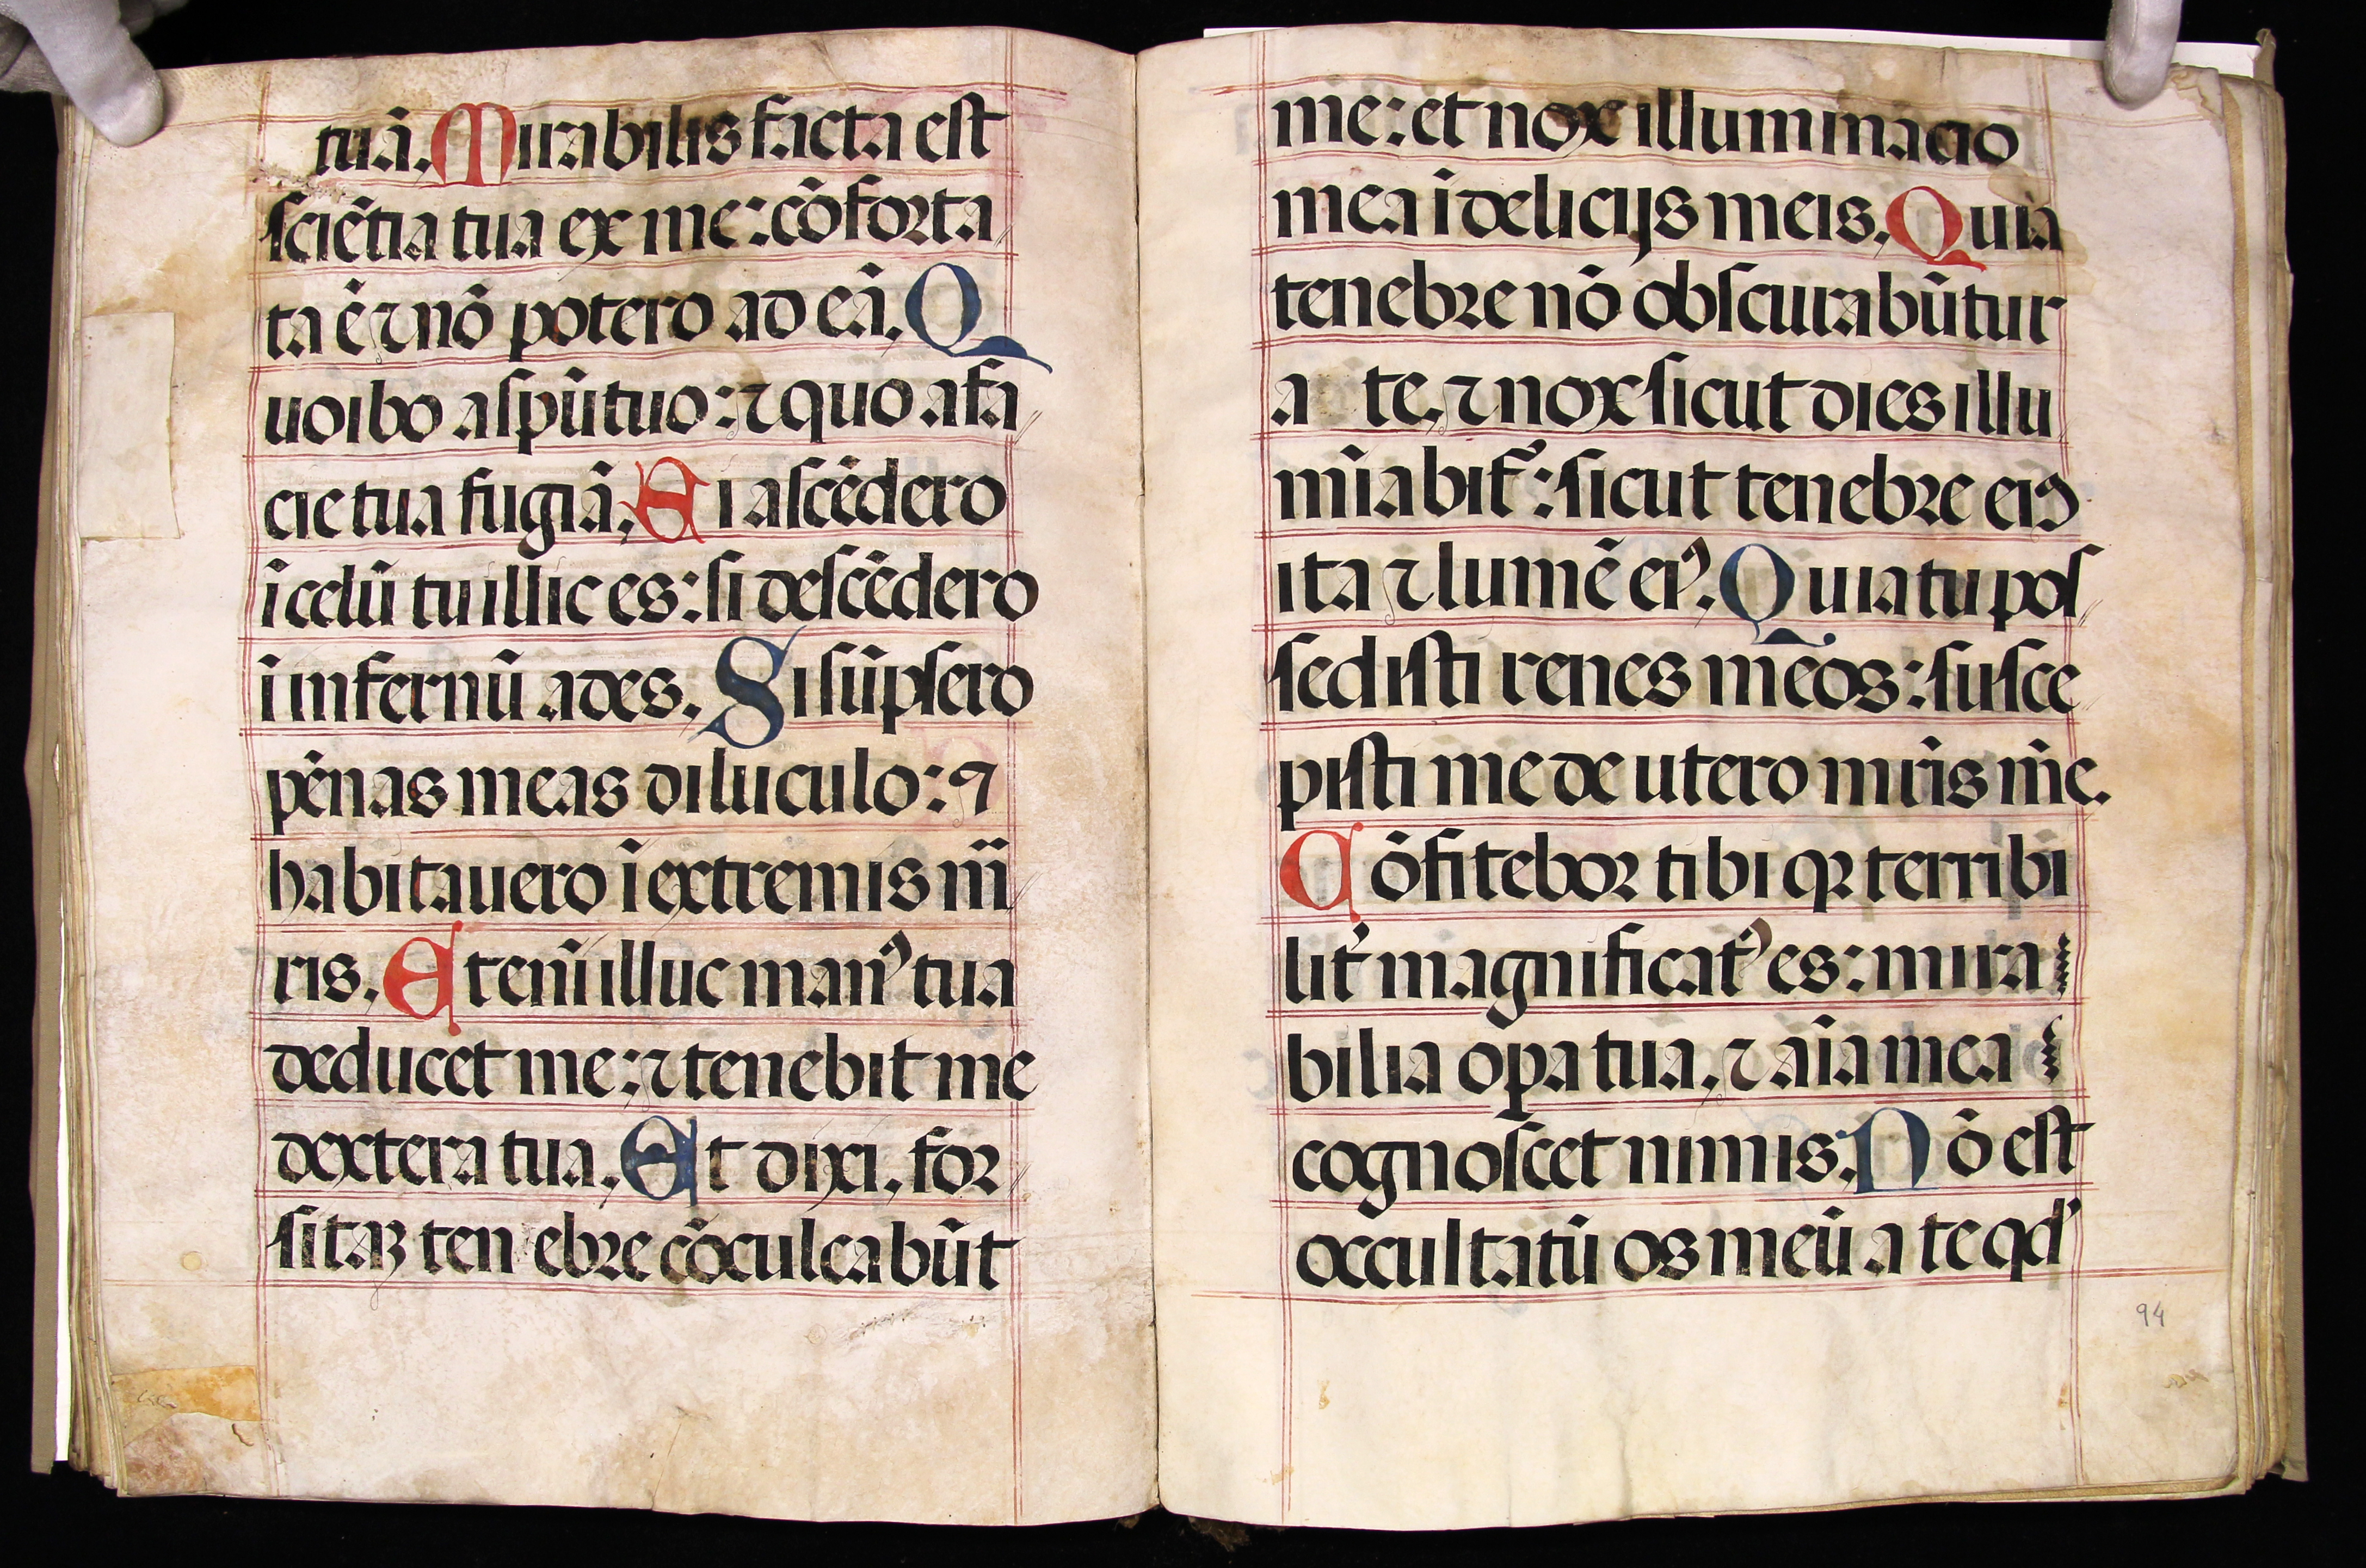 tuā. Mirabilis facta est
sciētia tua ex me: cōforta
ta ē ⁊ nō potero ad eā. Q
uo ibo a spū tuo: ⁊ quo a fa
cie tua fugiā. Si ascēdero
ī celū tu illic es: si descēdero
ī infernū ades. Si sūpsero
pēnas meas diluculo: ⁊
habitauero ī extremis m̄
ris. Eteni̅ illuc manꝰ tua
deducet me: ⁊ tenebit me
dextera tua. Et dixi. for
sitaꝫ tenebre cōculcabūt
me: et nox illuminacio
mea ī delicijs meis. Quia
tenebre nō obscurabūtur
a te. ⁊ nox sicut dies illu
mīabit᷑: sicut tenebre eiꝰ
ita ⁊ lumē eiꝰ. Quia tu pos
sedisti renes meos: susce
pisti me de utero mr̄is m̄e.
Cōfitebor tibi qꝛ terribi
lit᷑ magnificatꝰ es: mira
bilia opa tua. ⁊ aīa mea
cognoscet nimis. Nō est
occultatū os meū a te qd'
94